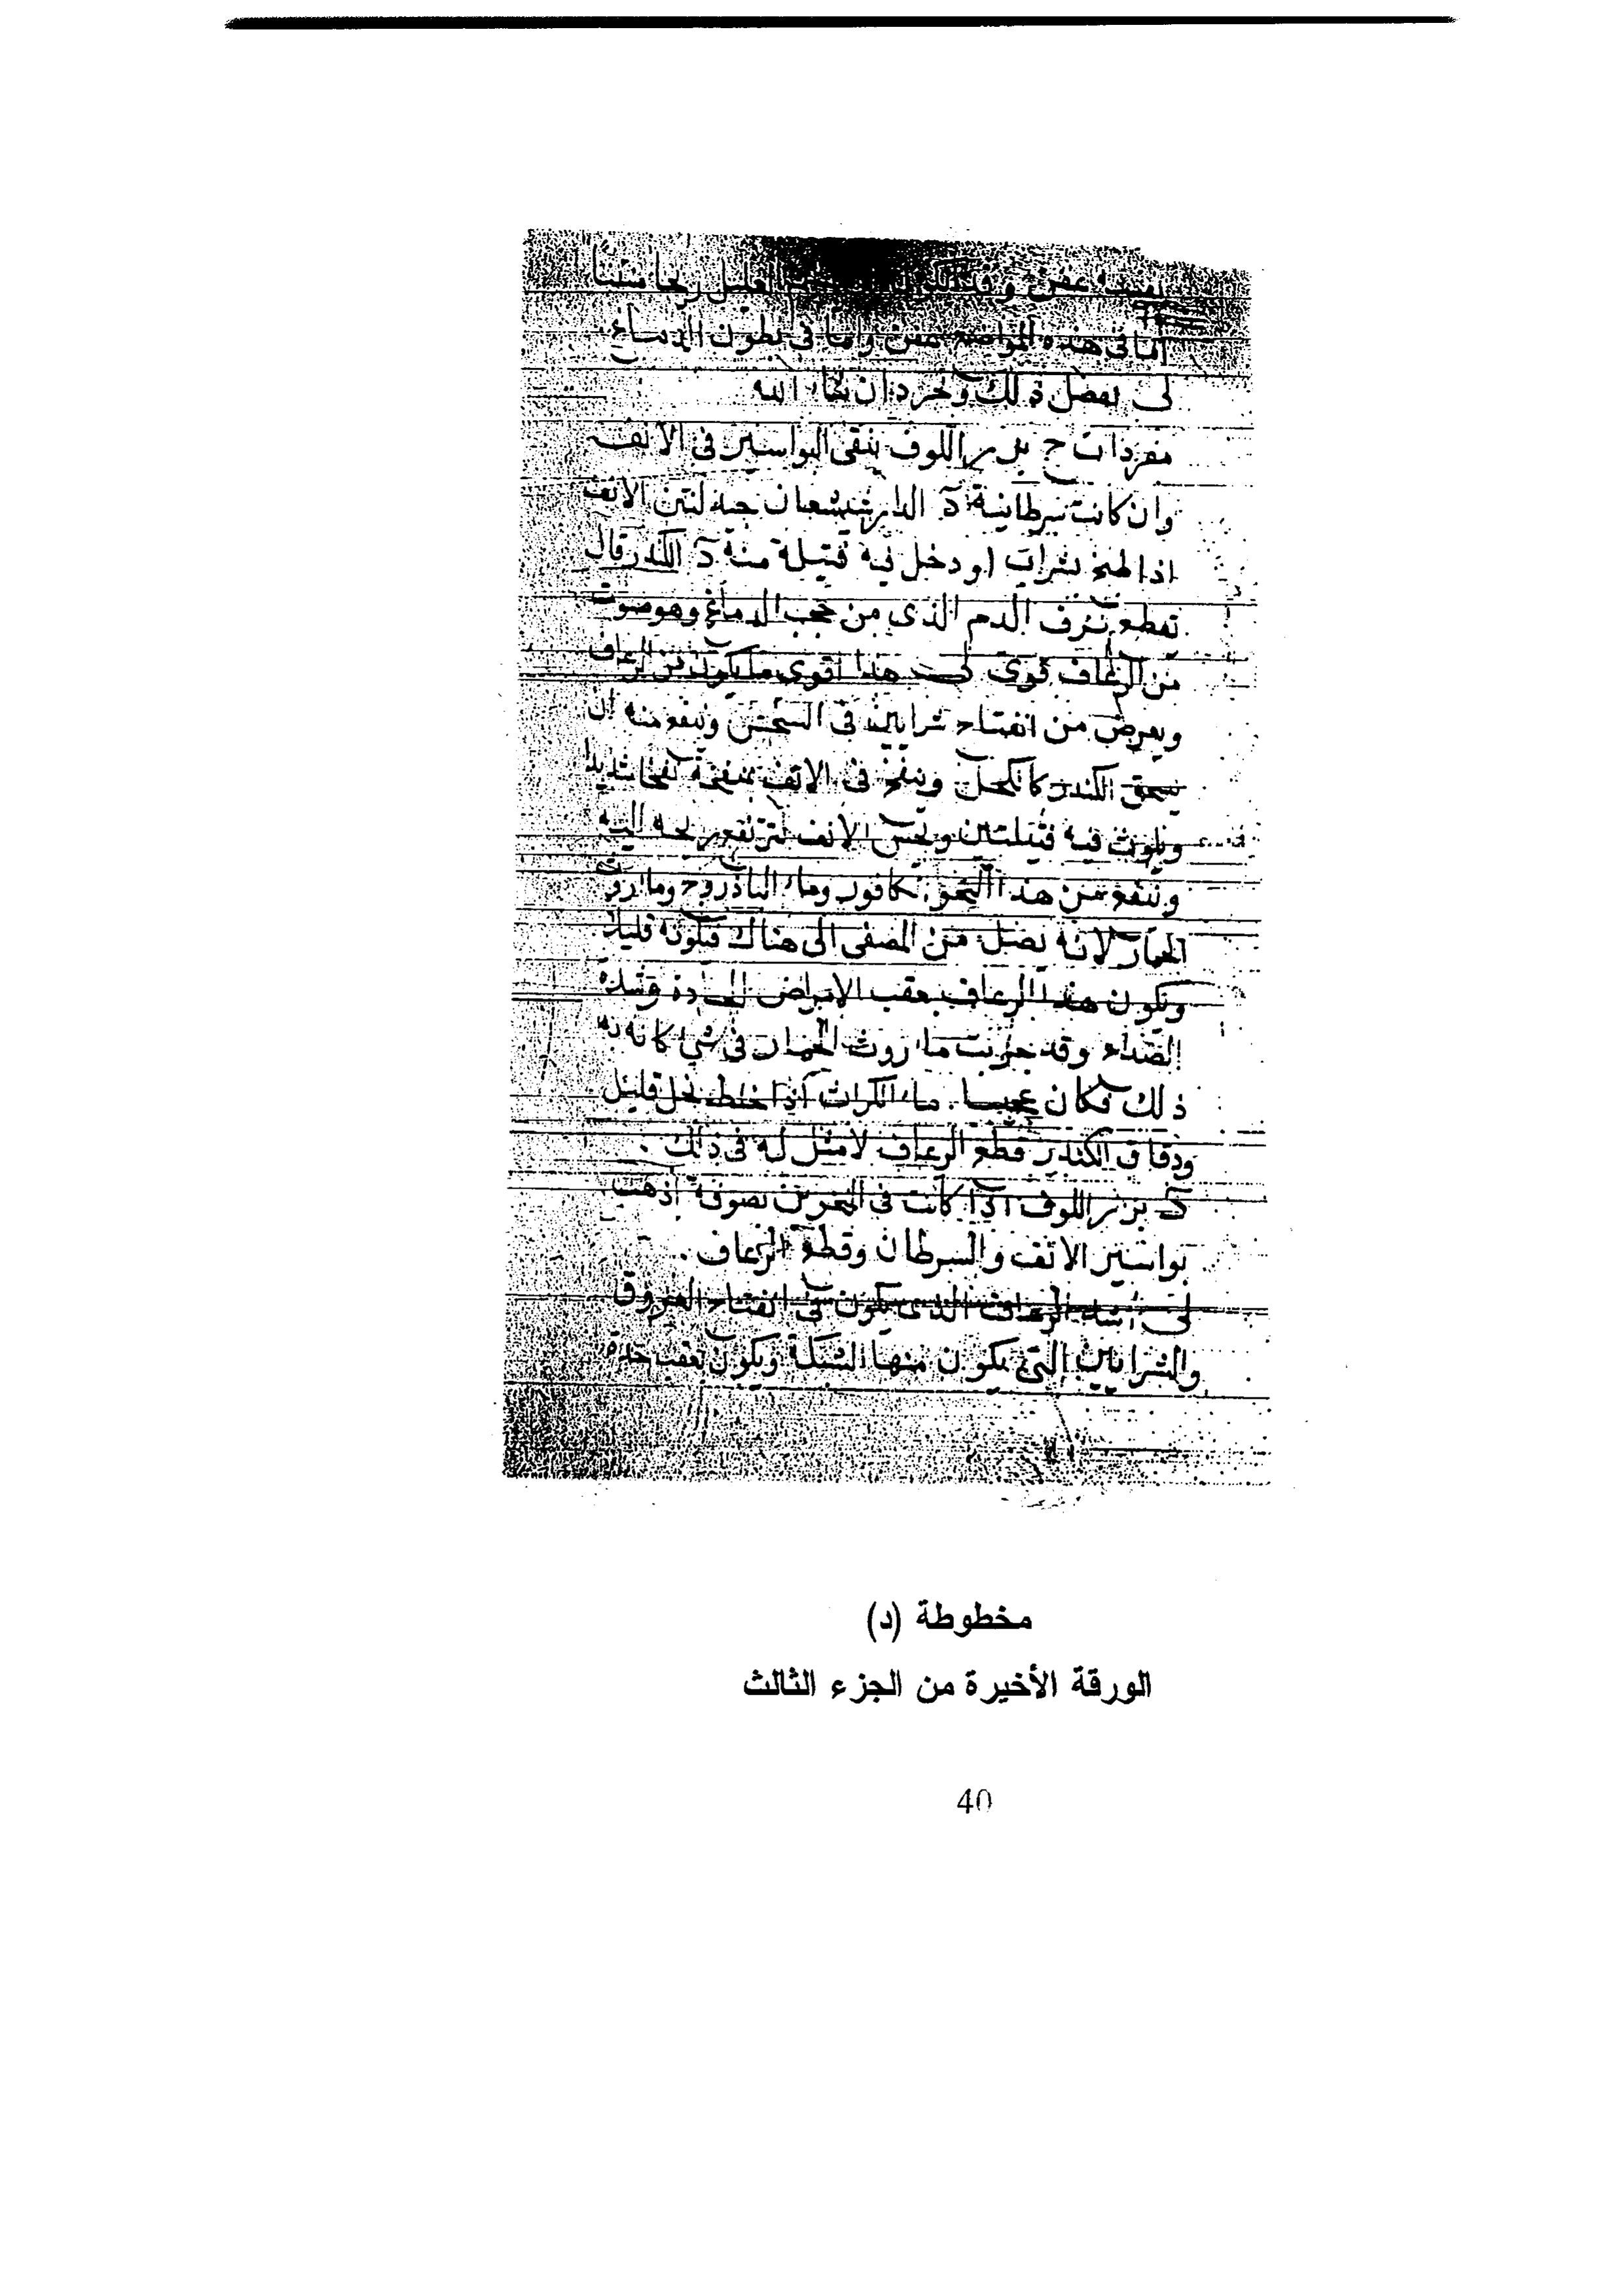 عفن وقد العليل ريحا منتنا
اما فى هذه المواضع عفن واما فى بطون الدماغ
لى يفصل ذلك ويحرر ان شاء الله
مفردات ج بزر اللوف ينقى البواسير فى الانف
وان كانت سرطانية د الدارشيشعان جيد لنتن الانف
اذا طبخ بشراب او دخل فيه فتيلة منه د الكندر قال
يقطع نزف الدم الذى من حجب الدماغ وهو صوت
من الرعاف قوى لى هذا اقوى ما يكون من الرعاف
ويعرض من انفتاح شرايين فى وينفع منه ان
يسحق الكندر كالكحل وينفخ فى الانف بمنفخة نفخا شديدا
ويلوث فيه فتيلتين ويحبس الانف لترتفع ريحه اليه
وينفع من هذا النحو كافور وماء الباذروج وماء روث
الحمار لانه يصل من المصفى الى هناك قليلا
ويكون هذا الرعاف بعقب الامراض الحادة وشدة
الصداع وقد جربت ماء روث الحمار فى شىء كانه به
ذلك فكان عجيبا. ماء الكراث اذا خلط بخل قليل
ودقاق الكندر قطع الرعاف لا مثل له فى ذلك.
د بزر اللوف اذا كانت فى المنخرين بصوفة اذهب
بواسير الانف والسرطان وقطع الرعاف.
لى اشد الرعاف الذى يكون من انفتاح العروق
والشرايين التى يكون منها الشبكة ويكون بعقب حدة
مخطوطة (د)
الورقة الأخيرة من الجزء الثالث
40